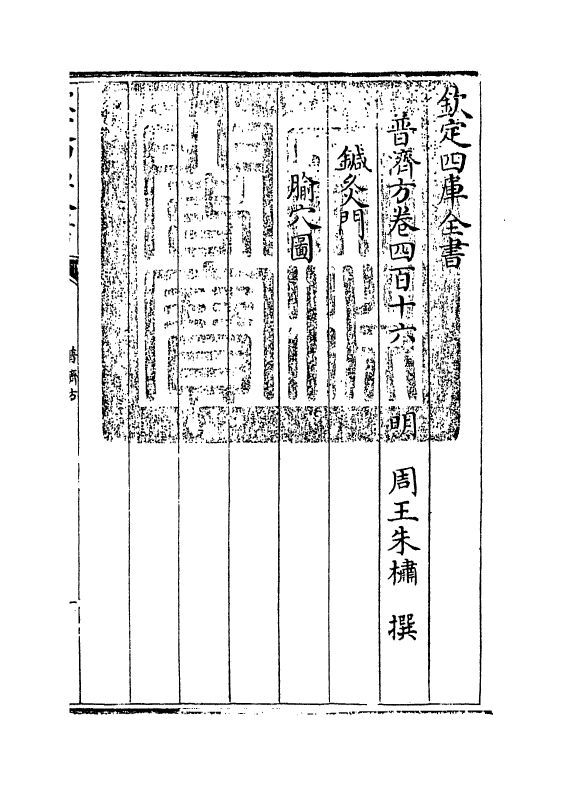 欽定四庫全書
普濟方卷四百十六 明 周王朱橚 撰
鍼灸門
腧穴圖
普濟方